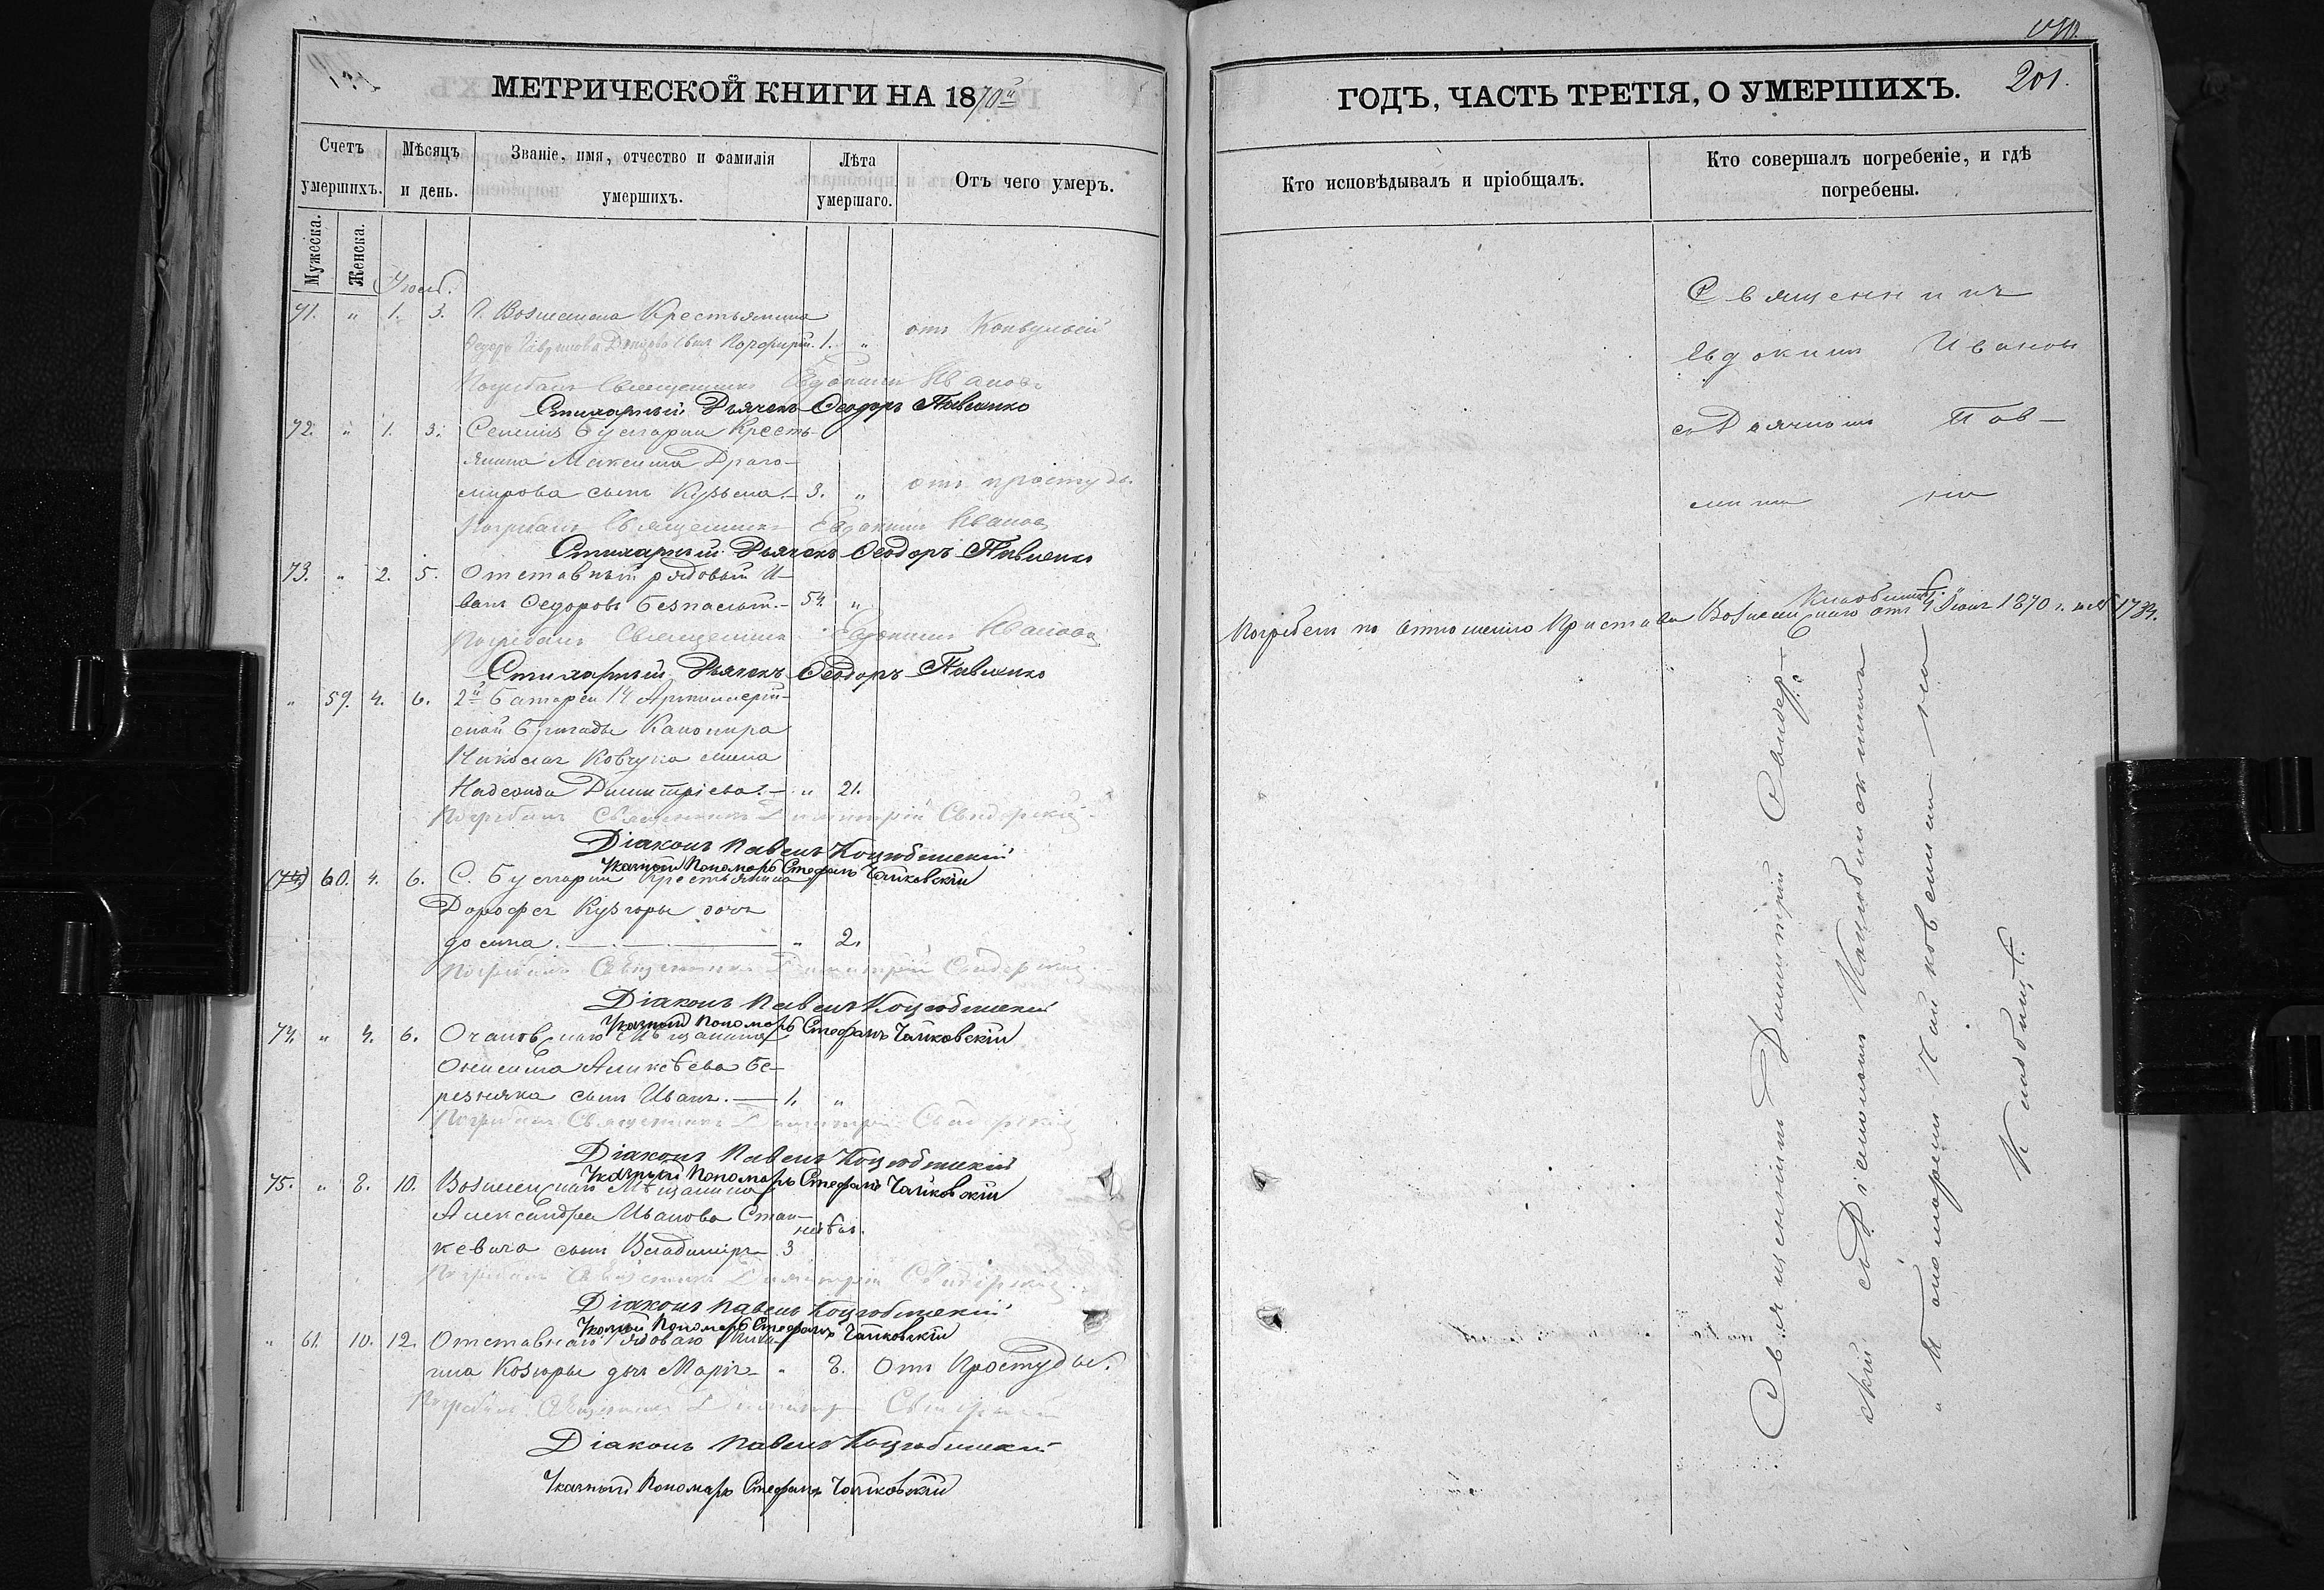 МЕТРИЧЕСКОЙ КНИГИ НА 1870й
Счетъ умершихъ.
Мѣсяцъ и день.
Званіе, имя, отчество и фамилія умершихъ.
Лѣта умершаго.
Отъ чего умеръ.
Мужеска.
Женска.
71. " 1. 3. Крестьянина
сынъ Порфирій. 1. " отъ Конвульсій
Погребалъ Священникъ Евдокимъ Ивановъ
Стихарный Дьячекъ Ѳеодоръ Павленко
72. " 1. 3. Селенія Булгарки Кресть-
янина Максима Драго-
мирова сынъ Кузьма. 3. " отъ простуды.
Погребалъ Священникъ Евдокимъ Ивановъ
Стихарный Дьячекъ Ѳеодоръ Павленко
73. " 2. 5. Отставный рядовый И-
ванъ Ѳедоровъ 54. "
Погребалъ Священникъ Евдокимъ Ивановъ
Стихарный Дьячекъ Ѳеодоръ Павленко
" 59. 4. 6. 2й Батареи 14 Артиллерій-
ской Бригады Канонира
Николая Ковчука
Надежда Димитріева. " 21.
Погребалъ Священникъ Димитрій Свидерскій
Діаконъ Павелъ Коцюбинскій
Указный Пономарь Стефанъ Чайковскій
(74) 60. 4. 6. С. Булгарки Крестьянина
Дорофея дочь
" 2.
Погребалъ Священникъ Димитрій Свидерскій
Діаконъ Павелъ Коцюбинскій
Указный Пономарь Стефанъ Чайковскій
74. " 4. 6. Очаковскаго Мѣщанина
Онисима Аликсѣева Бе-
резняка сынъ Иванъ. 1. "
Погребалъ Священникъ Димитрій Свидерскій
Діаконъ Павелъ Коцюбинскій
Указный Пономарь Стефанъ Чайковскій
75. " 8. 10. Вознесенскаго Мѣщанина
Александра Иванова Стан-
кевича сынъ Владиміръ 3 недѣл.
Погребалъ Священникъ Димитрій Свидерскій
Діаконъ Павелъ Коцюбинскій
Указный Пономарь Стефанъ Чайковскій
" 61. 10. 12. Отставнаго Рядоваго
Козюры дочь Марія " 8. Отъ Простуды.
Погребалъ Священникъ Димитрій Свидерскій
Діаконъ Павелъ Коцюбинскій
Указный Пономарь Стефанъ Чайковскій
ГОДЪ, ЧАСТЬ ТРЕТІЯ, О УМЕРШИХЪ.
201.
Кто исповѣдывалъ и пріобщалъ.
Кто совершалъ погребеніе, и гдѣ погребены.
Священникъ
Евдокимъ Иванов
съ Дьячкомъ Пав-
Погребенъ по отношенію Пристава Вознесенскаго отъ 4 Іюня 1870 г. за № 1734.
Кладбищѣ.
Священникъ Димитрій Свидер-
скій съ Діакономъ Коцюбинскимъ
и Пономаремъ Чайковскимъ на
Кладбищѣ.